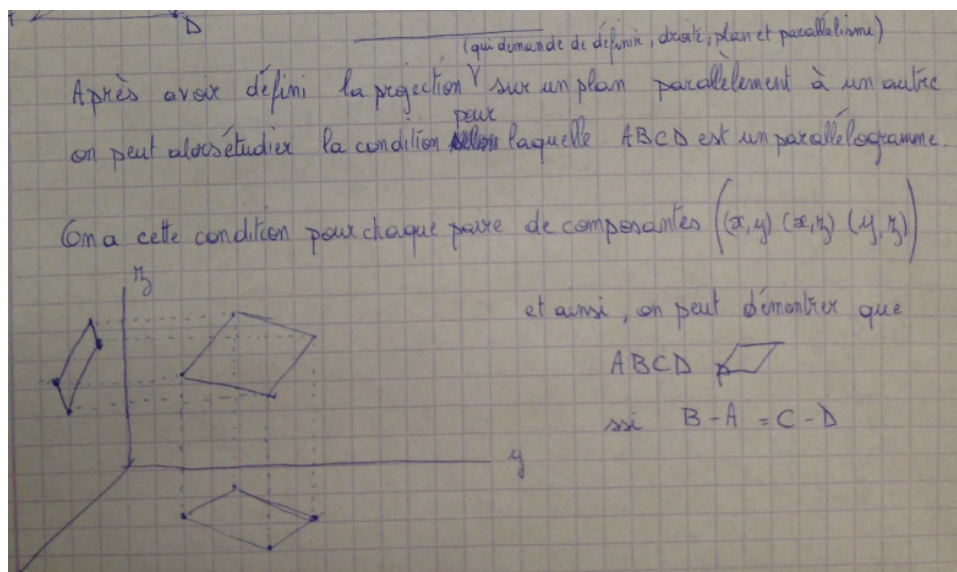 D
(qui demande de définir, droite, plan et parallélisme)
Après avoir défini la projection sur un plan parallèlement à un autre
pour
on peut alors étudier la condition selon laquelle ABCD est un parallélogramme.
On a cette condition pour chaque paire de composantes ((x,y) (x,z) (y,z))
z
et ainsi, on peut démontrer que
ABCD
ssi B-A = C-D
y